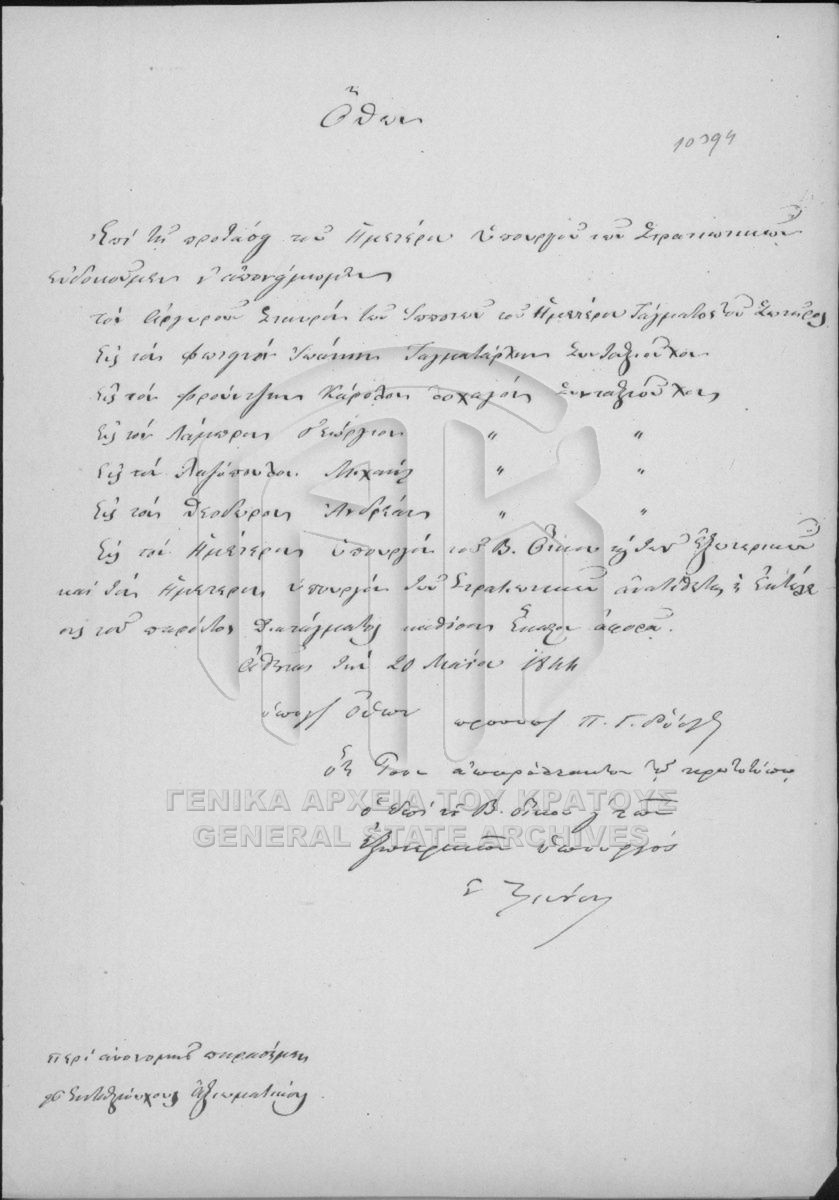 Ὄθων
10394
Ἐπὶ τῇ προτάσῃ τοῦ Ἡμετέρου Ὑπουργοῦ τῶν Στρατιωτικῶν
εὐδοκοῦμεν ν' ἀπονέμωμεν
τὸν Ἀργυροῦν Σταυρὸν τῶν Ἱπποτῶν τοῦ Ἡμετέρου Τάγματος τοῦ Σωτῆρος
Εἰς τὸν Ἰωάννην Ταγματάρχην Συνταξιοῦχον
Εἰς τὸν Κάρολον λοχαγὸν Συνταξιοῦχον
Εἰς τὸν Λάμπρον Γεώργιον " "
Εἰς τὸν Μιχαὴλ " "
Εἰς τὸν Θεοδώρου Ἀνδρέαν " "
Εἰς τὸν Ἡμέτερον Ὑπουργὸν τοῦ Β. Οἴκου καὶ τῶν Ἐξωτερικῶν
καὶ τὸν Ἡμέτερον Ὑπουργὸν τῶν Στρατιωτικῶν ἀνατίθεται ἡ ἐκτέλε
σις τοῦ παρόντος Διατάγματος καθόσον ἕκαστον ἀφορᾷ.
Ἀθῆναι τὴν 20 Μαΐου 1844
ὑπογ Ὄθων προσυπ Π. Γ. Ῥόδιος
ὅτι ἴσον ἀπαράλλακτον τῷ πρωτοτύπῳ
ὁ ἐπὶ τοῦ Β. Οἴκου καὶ τῶν
Ἐξωτερικῶν Ὑπουργός
ΓΕΝΙΚΑ ΑΡΧΕΙΑ ΤΟΥ ΚΡΑΤΟΥΣ
GENERAL STATE ARCHIVES
περὶ ἀπονομῆς παρασήμων
εἰς Συνταξιούχους Ἀξιωματικούς